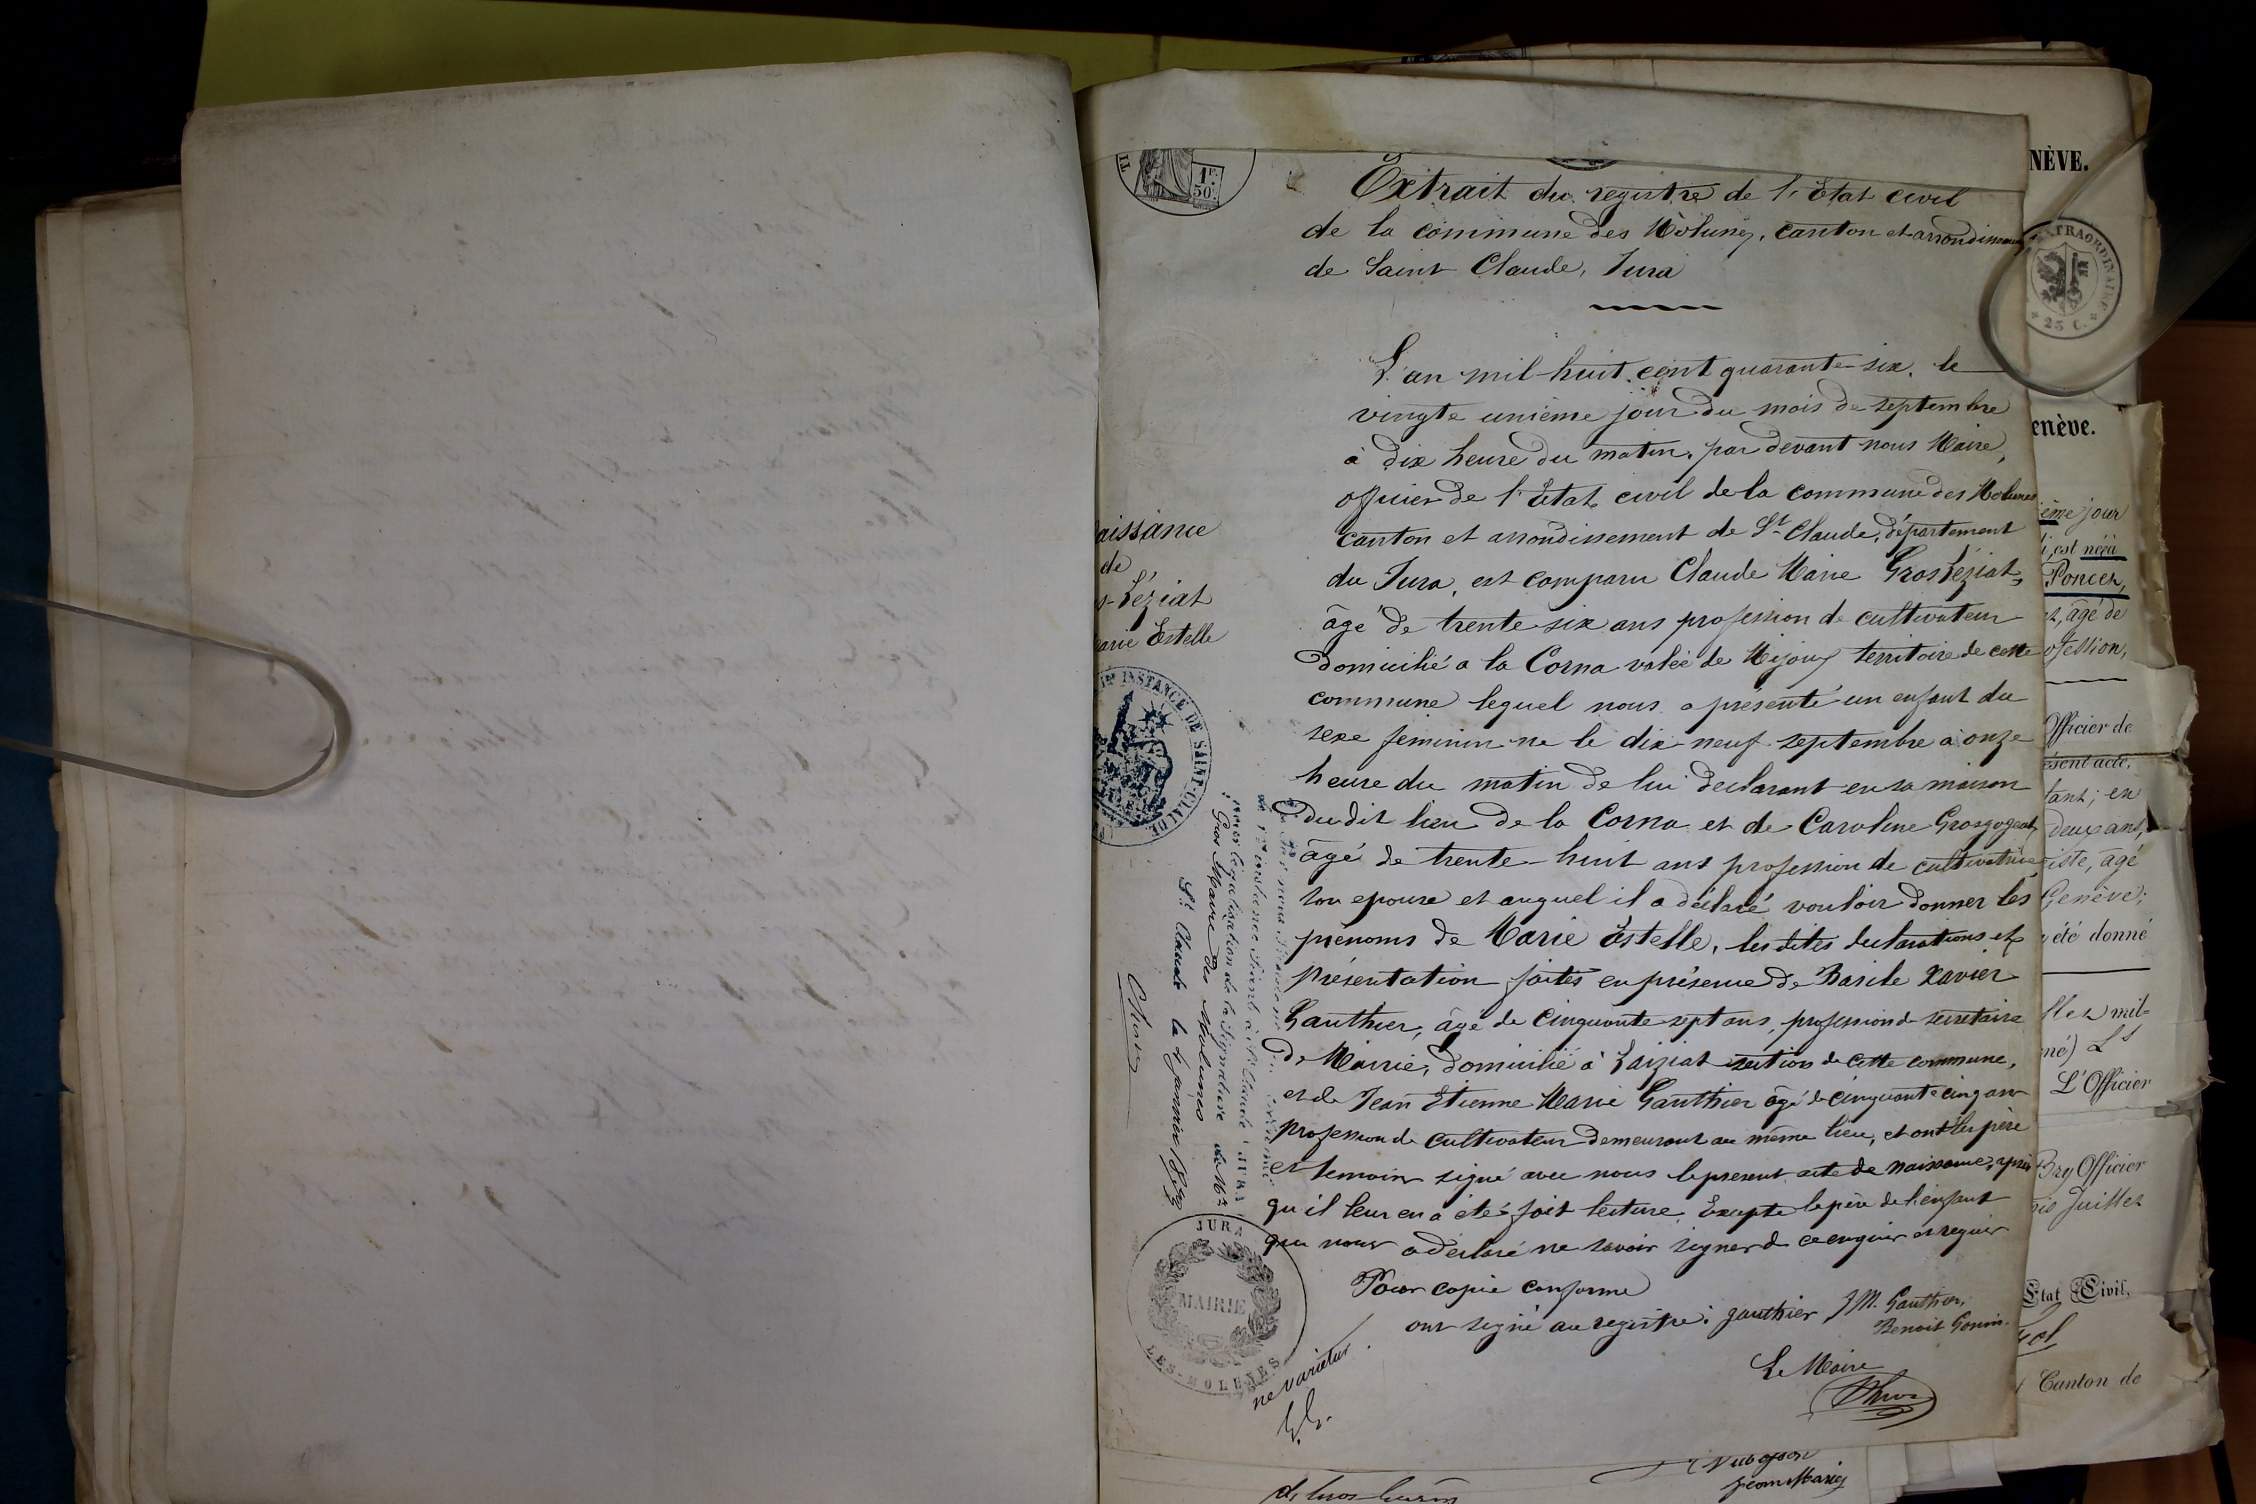 1F
50c.
Extrait du registre de l'Etat civil
de la commune des Molunes, canton et arrondissement
de Saint Claude, Jura
L'an mil huit cent quarante-six, le
vingte unième jour du mois de septembre
à dix heure du matin, par devant nous Maire,
officier de l'Etat civil de la commune des Molunes
canton et arrondissement de St Claude, département
du Jura, est comparu Claude Marie Gros Léziat,
âgé de trente-six ans profession de cultivateur
domicilié a la Corna valée de Mijoux territoire de cette
commune lequel nous a présenté un enfant du
sexe feminin né le dix neuf septembre a onze
heure du matin de lui declarant en sa maison
du dit lieu de la Corna et de Caroline Grosgogeat,
âgé de trente-huit ans profession de cultivatrice
son epouse et auquel il a déclaré vouloir donner les
prénoms de Marie Estelle, les dites declarations et
présentation faites en présence de Basile Xavier
Gauthier, âgé de cinquante sept ans, profession de secretaire
de Mairie, domicilié à Laiziat section de cette commune,
et de Jean Etienne Marie Gauthier âgé de cinquante cinq ans
profession de cultivateur demeurant au même lieu, et ont les père
et temoins signé avec nous le present acte de naissance, après
qu'il leur en a été fait lecture. Excepte le père de l'enfant
qui nous a déclaré ne savoir signer de ce enquis et requis
Pour copie conforme
ont signé au registre: gauthier, J M. Gauthier,
Benoit Gonin.
Le Maire
aissance
de
s-Léziat
arie Estelle
INSTANCE DE SAINT-CLAUDE
pour légalisation de la Signature de Mr
Gros Maire des Molunes
St Claude le
JURA
MAIRIE
LES-MOLUNES
ne varietur
NÈVE.
TRAORDINAIRE
25 C.
enève.
ième jour
i, est né(e) à
Poncet,
âgé de
ofession,
Officier de
ésent acte,
tant; en
deux ans,
iste, âgé
Genève;
été donné
mil-
né) Ls
L'Officier
Bry Officier
Juillet
Etat Civil,
Canton de
Jean Marie